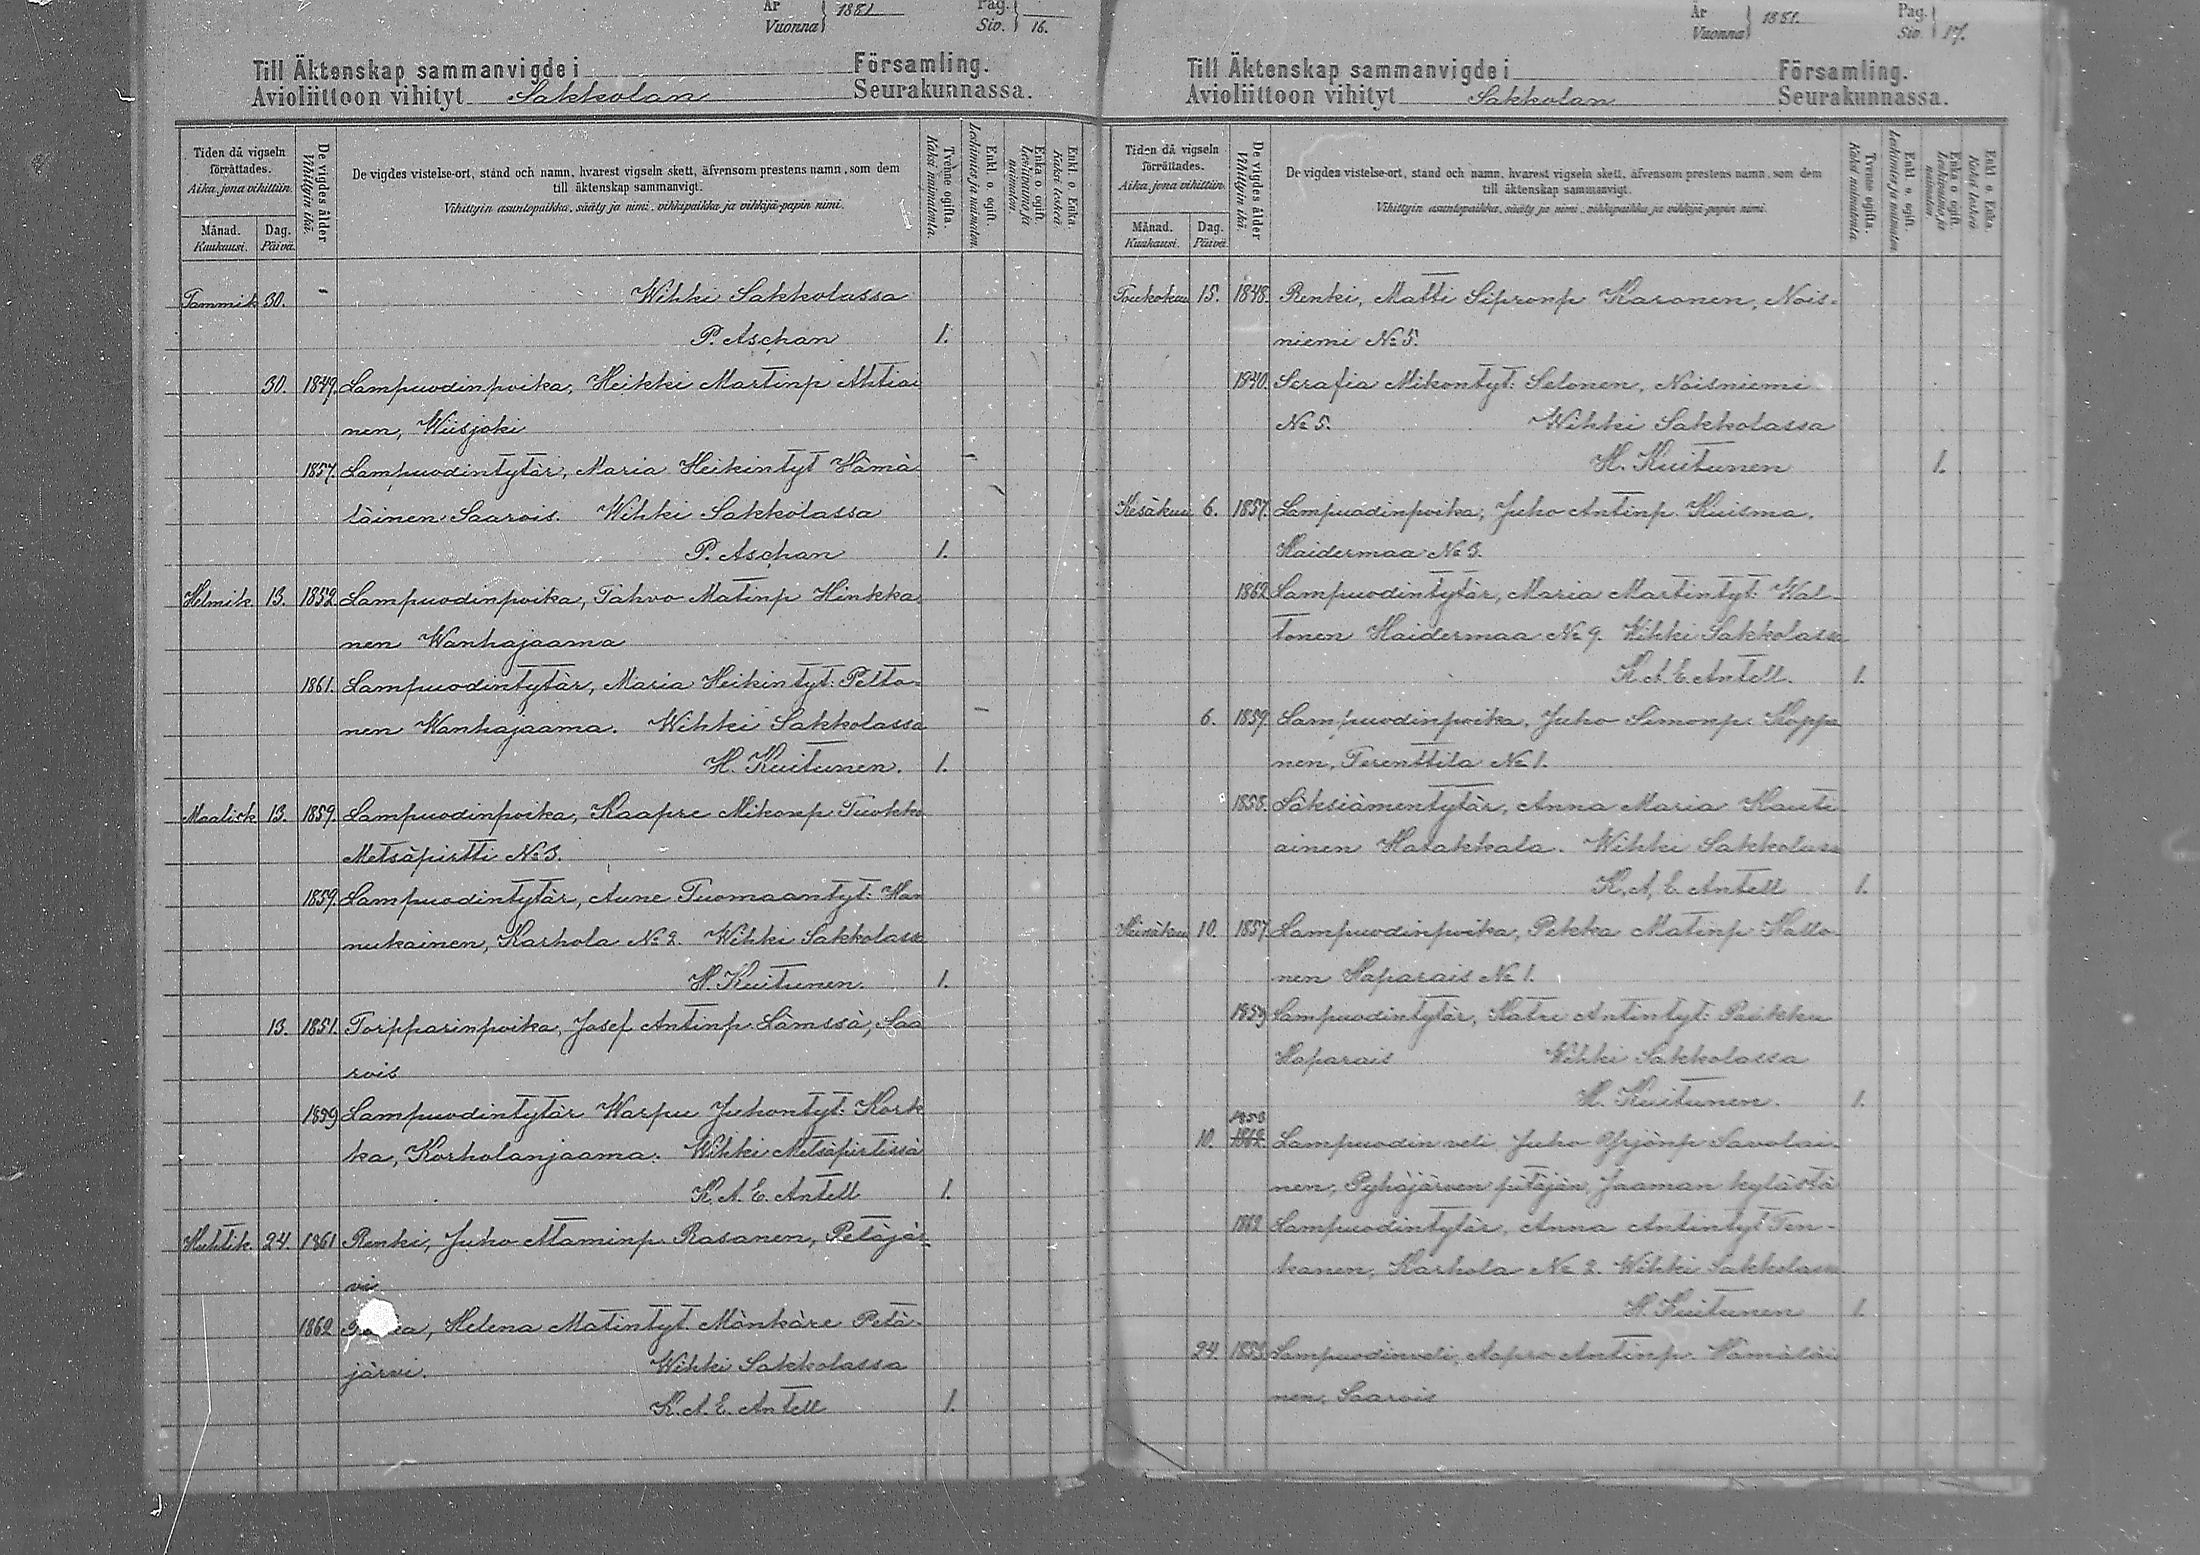 År Vuonna } 1881 Pag. Siv. } 16.
Till Äktenskap sammanvigde i Församling.
Avioliittoon vihityt Sakkolan Seurakunnassa.
Tiden då vigseln förrättades.
Aika, jona vihittiin.
Månad. Kuukausi.
Dag. Päivä.
De vigdes ålder
Vihittyin ikä.
De vigdes vistelse-ort, stånd och namn, hvarest vigseln skett, äfvensom prestens namn, som dem
till äktenskap sammanvigt.
Vihittyin asuntopaikka, sääty ja nimi, vihkipaikka ja vihkijä-papin nimi.
Tvänne ogifta.
Kaksi naimatonta.
Enkl. o. ogift.
Leskimies ja naimaton.
Enka o. ogift.
Leskivaimo ja naimaton.
Enkl. o. Enka.
Kaksi leskeä.
Tammik 30. Wihki Sakkolassa
P. Aschan 1.
30. 1849. Lampuodinpoika, Heikki Martinp Ahtiai
nen, Wiisjoki
1857. Lampuodintytär, Maria Heikintyt Hämä
läinen Saarois. Wihki Sakkolassa
P. Aschan 1.
Helmik. 13. 1852 Lampuodinpoika, Tahvo Matinp Hinkka
nen Wanhajaama
1861. Lampuodintytär, Maria Heikintyt: Pelto-
nen Wanhajaama. Wihki Sakkolassa
H. Kuitunen. 1.
Maalisk 13. 1859. Lampuodinpoika, Kaapre Mikonp Tuokko
Metsäpirtti No 3.
1859. Lampuodintytär, Aune Tuomaantyt: Han
nukainen, Karhola No 2. Wihki Sakkolassa
H. Kuitunen. 1.
13. 1851. Torpparinpoika, Josef Antinp. Lämssä, Saa
rois
1859 Lampuodintytär Warpu Juhontyt: Kork
ka, Korholanjaama. Wihki Metsäpirtissä
K. A. E. Antell 1.
Huhtik. 24. 1861 Renki, Juho Ataminp. Rasanen, Petäjär
vi
1862 Helena Matintyt. Mänkäre Petä-
järvi. Wihki Sakkolassa
K. A. E. Antell 1.
År Vuonna } 1881. Pag. Siv. } 17.
Till Äktenskap sammanvigde i Församling.
Avioliittoon vihityt Sakkolan Seurakunnassa.
Tiden då vigseln förrättades.
Aika, jona vihittiin.
Månad. Kuukausi.
Dag. Päivä.
De vigdes ålder
Vihittyin ikä.
De vigdes vistelse-ort, stånd och namn, hvarest vigseln skett, äfvensom prestens namn, som dem
till äktenskap sammanvigt.
Vihittyin asuntopaikka, sääty ja nimi, vihkipaikka ja vihkijä-papin nimi.
Tvänne ogifta.
Kaksi naimatonta.
Enkl. o. ogift.
Leskimies ja naimaton.
Enka o. ogift.
Leskivaimo ja naimaton.
Enkl. o. Enka.
Kaksi leskeä.
Toukokuu 15. 1848. Renki, Matti Sipronp Karonen, Nois-
niemi No 5.
1840. Serafia Mikontyt: Selonen, Noisniemi
No 5. Wihki Sakkolassa
H. Kuitunen 1.
Kesäkuu 6. 1857. Lampuodinpoika, Juho Antinp. Kuisma,
Haidermaa No 3.
1862 Lampuodintytär, Maria Martintyt: Wal-
tonen Haidermaa No 9. Wihki Sakkolassa
K. A. E. Antell. 1.
6. 1859. Lampuodinpoika, Juho Simonp. Koppa
nen, Terenttilä No 1.
1858. Säksiämentytär, Anna Maria Kauti
ainen Harakkala. Wihki Sakkolassa
K. A. E. Antell 1.
Heinäkuu 10. 1857 Lampuodinpoika, Pekka Matinp Hatto
nen Haparais No 1.
1859 Lampuodintytär, Katri Antintyt: Peikku
Haparais Wihki Sakkolassa
H. Kuitunen. 1.
1853
10. 1862 Lampuodin veli, Juho Yrjönp Savolai-
nen, Pyhäjärven pitäjän Jaaman kylästä
1862 Lampuodintytär, Anna Antintyt Ten-
kanen, Karhola No 2. Wihki Sakkolassa
H. Kuitunen 1.
24. Lampuodinveli, Aapro Antinp. Hämäläi
nen, Saarois